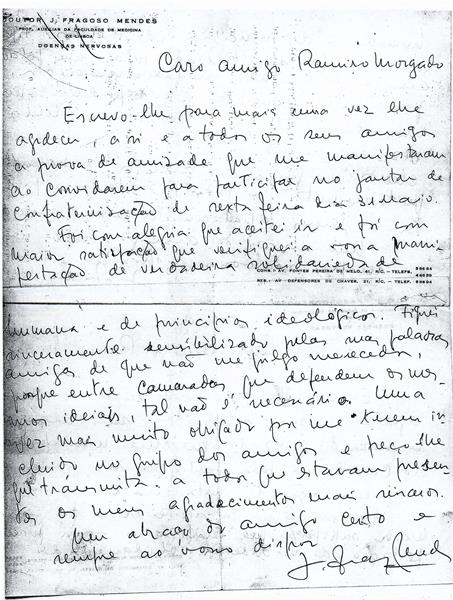 DOUTOR J. FRAGOSO MENDES
PROF. AUXILIAR DA FACULDADE DE MEDICINA
DE LISBOA
DOENÇAS NERVOSAS
Caro amigo Ramiro Morgado
Escrevo-lhe para mais uma vez lhe
agradecer, a si e a todos os seus amigos
a prova de amizade que me manifestaram
ao convidarem para participar no jantar de
confraternização de sexta feira dia 31 Maio.
Foi com alegria que aceitei ir e foi com
maior satisfação que verifiquei a vossa manifes-
tação de verdadeira solidariedade
CONS.: AV. FONTES PEREIRA DE MELO, 41, R/C. - TELEFS.
RES.: AV. DEFENSORES DE CHAVES, 21, R/C. - TELEF.
humana e de princípios ideológicos. Fiquei
sinceramente sensibilizado pelas suas palavras
amigas de que não me julgo merecedor,
porque entre camaradas que defendem os mes-
mos ideais, tal não é necessário. Uma
vez mais muito obrigado por me terem in-
cluído no grupo dos amigos e peço-lhe
que transmita a todos que estavam presen-
tes os meus agradecimentos mais sinceros.
Um abraço do amigo certo e
sempre ao vosso dispor